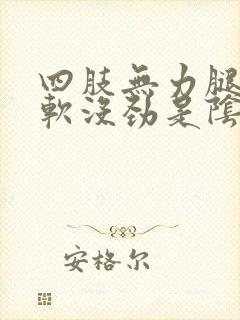 四肢無力腿
軟沒勁是陰
安格尔